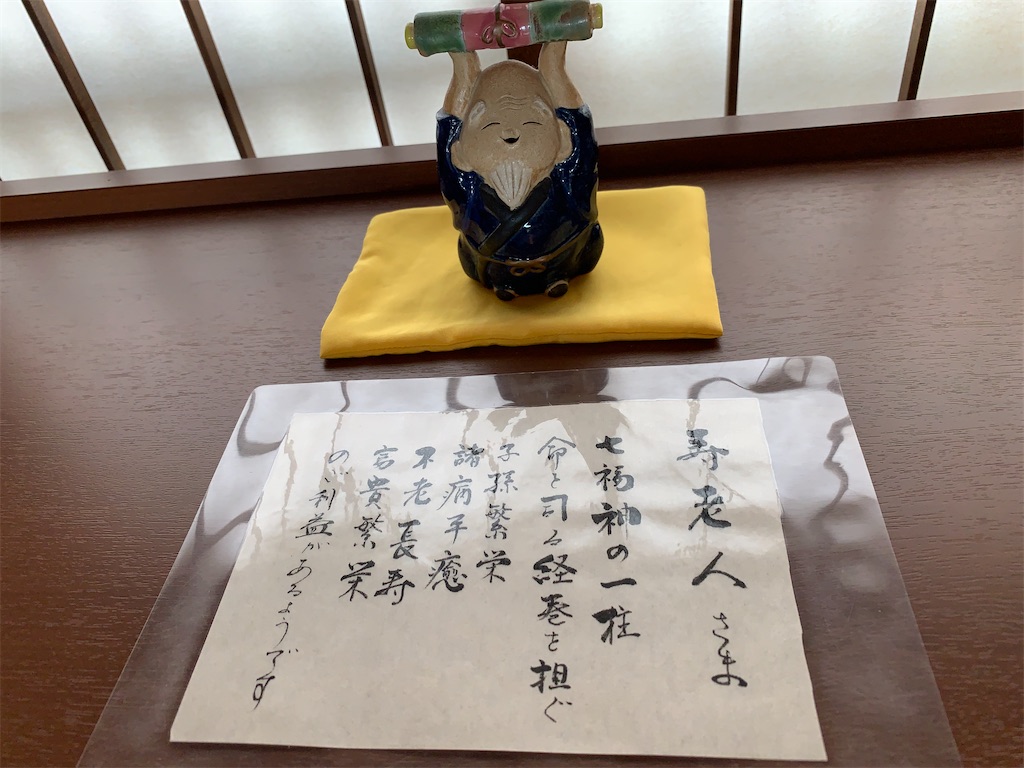 寿老人さま
七福神の一柱
命を司る経巻を担ぐ
子孫繁栄
諸病平癒
不老長寿
富貴繁栄
のご利益があるようです